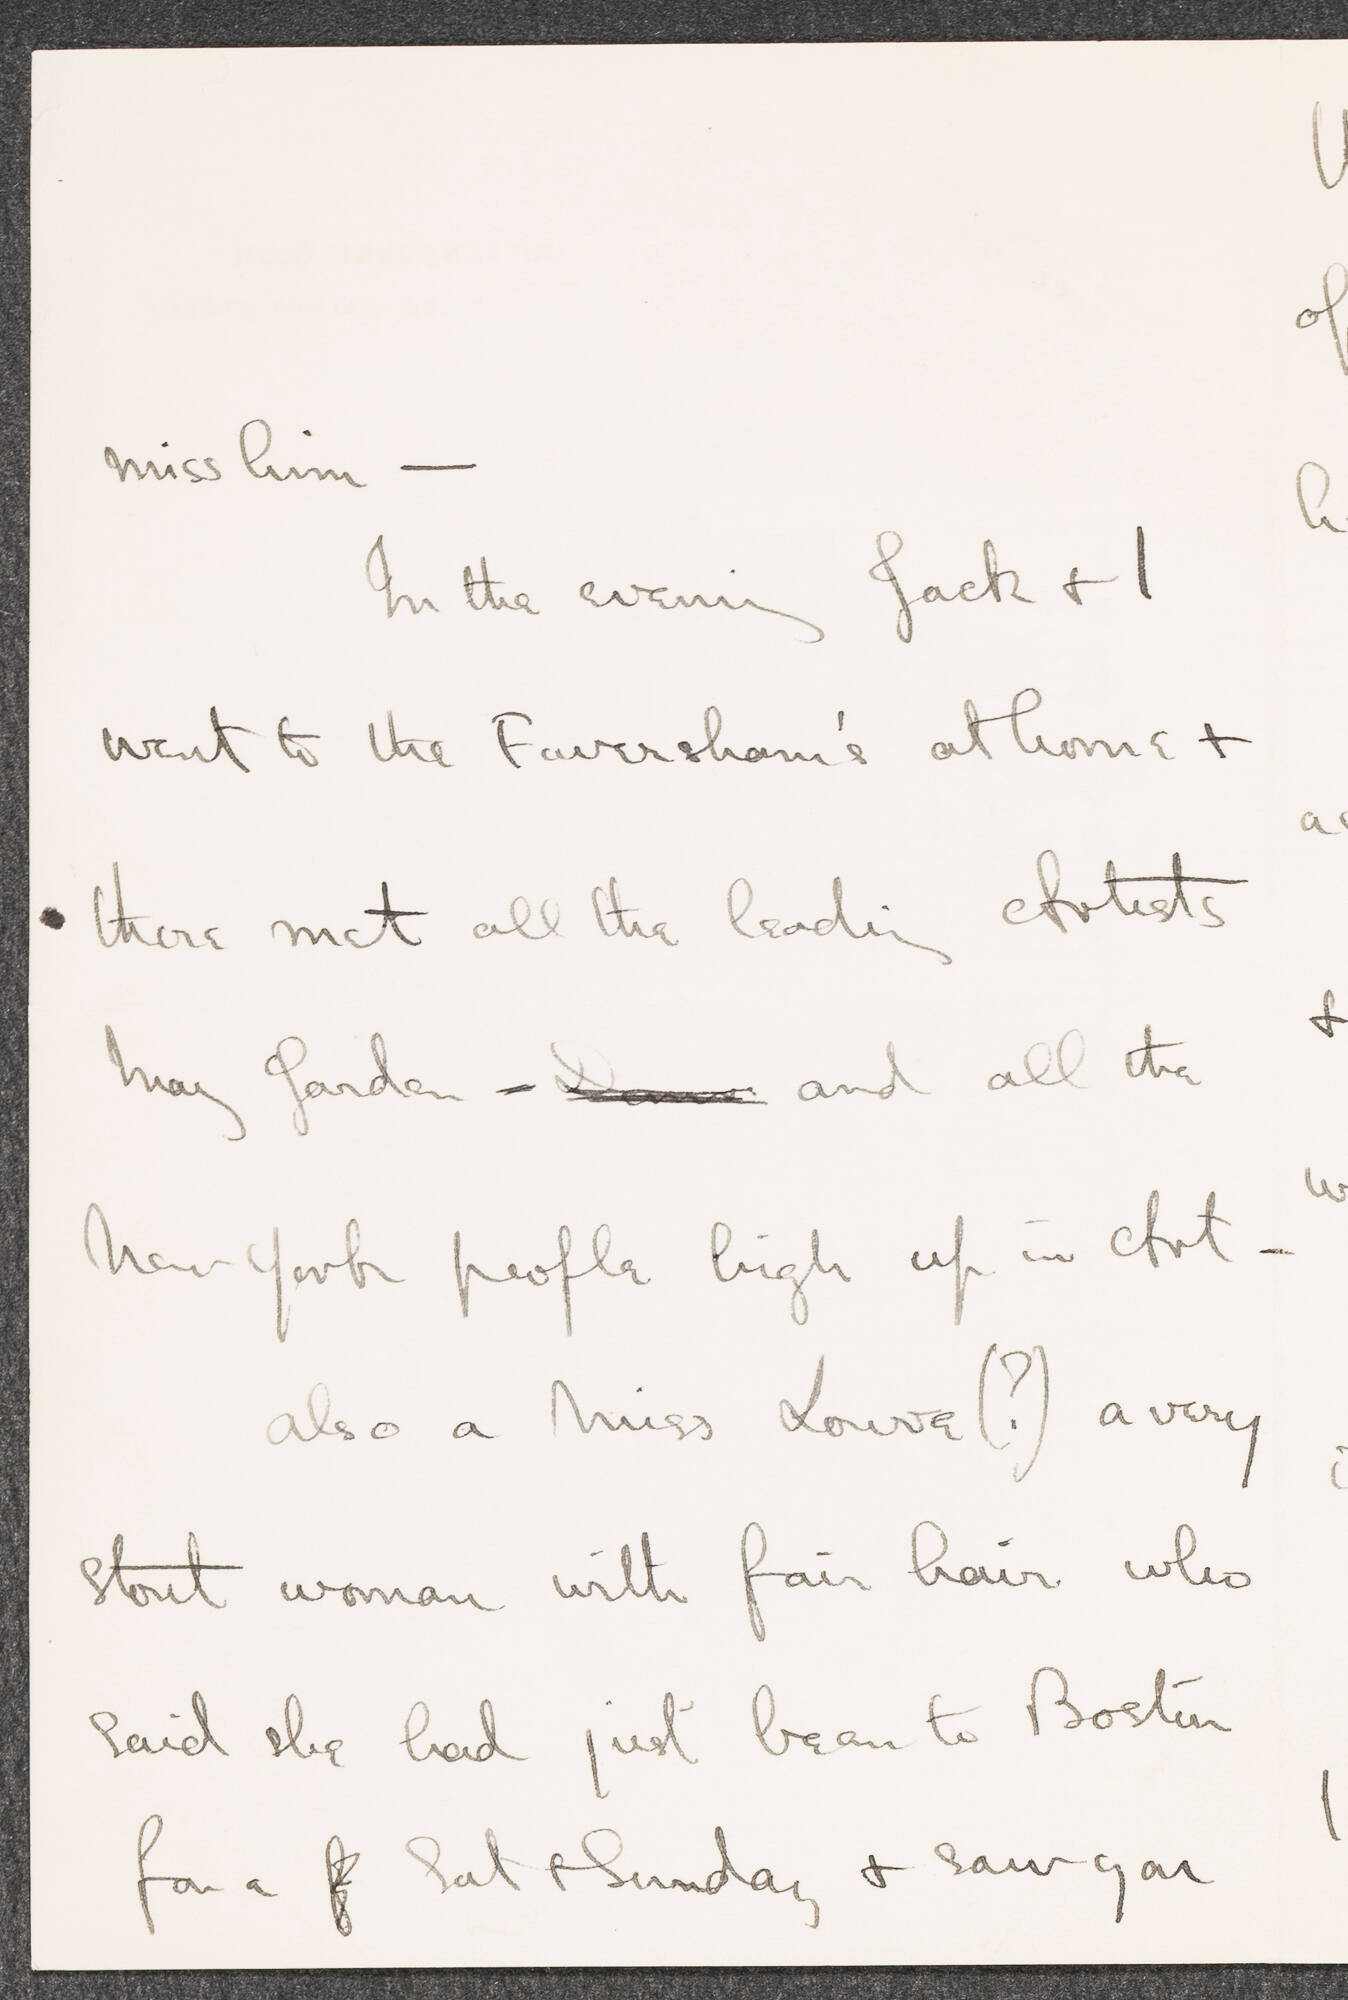 miss him —
In the evening Jack + I
went to the Faversham's at home +
there met all the leading Artists
May Garden - and all the
New York people high up in Art -
also a Miss Louve (?) a very
stout woman with fair hair who
said she had just been to Boston
for a Sat + Sunday + saw you